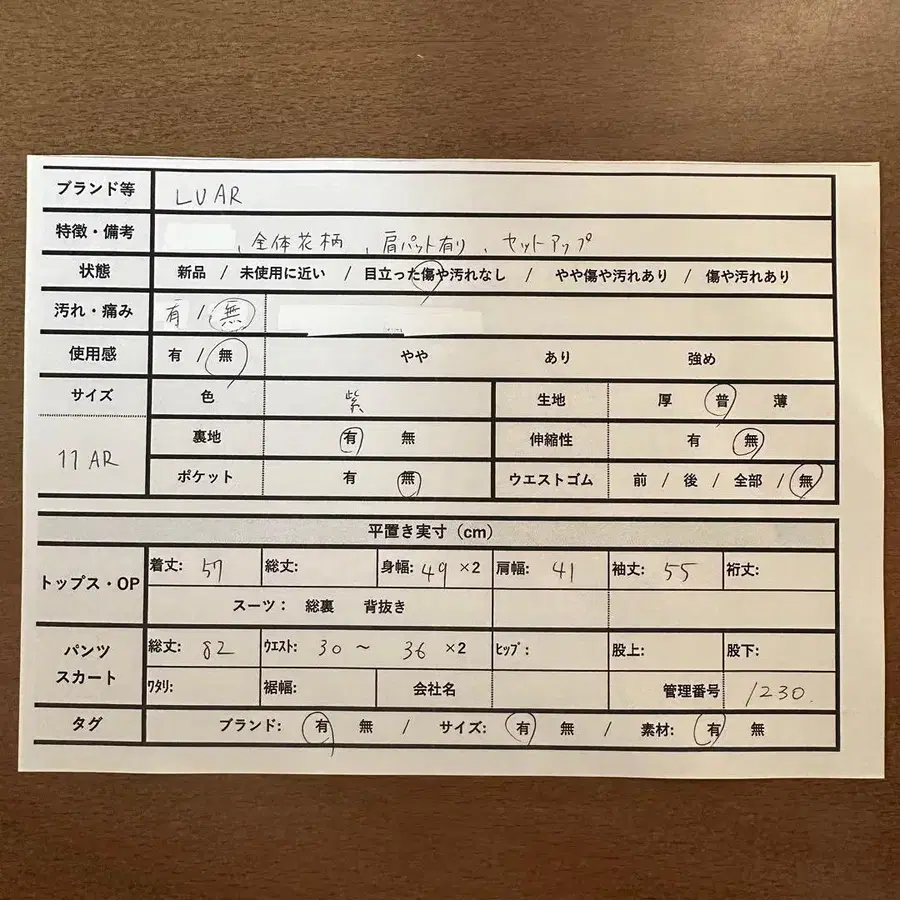 ブランド等 LUAR
特徴・備考 、全体花柄、肩パット有り、セットアップ
状態 新品 / 未使用に近い / 目立った傷や汚れなし / やや傷や汚れあり / 傷や汚れあり
汚れ・痛み 有 / 無
使用感 有 / 無 やや あり 強め
サイズ 色 紫 生地 厚 普 薄
11AR 裏地 有 無 伸縮性 有 無
ポケット 有 無 ウエストゴム 前 / 後 / 全部 / 無
平置き実寸（cm）
トップス・OP 着丈: 57 総丈: 身幅: 49 ×2 肩幅: 41 袖丈: 55 裄丈:
スーツ： 総裏 背抜き
パンツ スカート 総丈: 82 ウエスト: 30 〜 36 ×2 ヒップ: 股上: 股下:
ワタリ: 裾幅: 会社名 管理番号 1230.
タグ ブランド: 有 無 / サイズ: 有 無 / 素材: 有 無